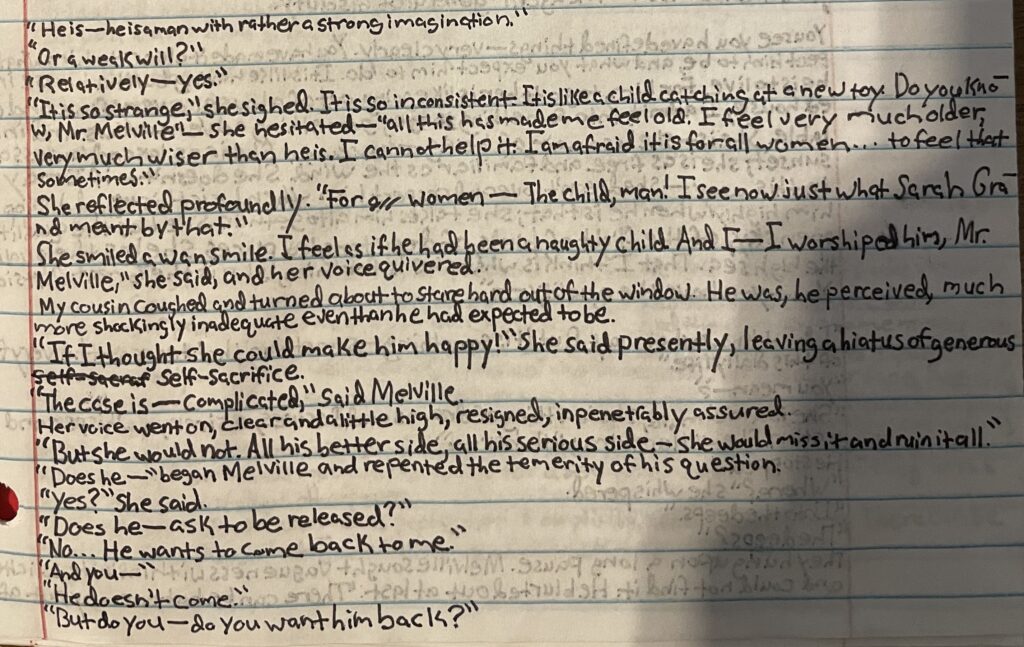 "He is—he is a man with rather a strong imagination."
"Or a weak will?"
"Relatively—yes."
"It is so strange," she sighed. It is so inconsistent. It is like a child catching at a new toy. Do you kno-
w, Mr. Melville"—she hesitated—"all this has made me feel old. I feel very much older,
very much wiser than he is. I cannot help it. I am afraid it is for all women... to feel that
sometimes."
She reflected profoundly. "For all women— The child, man! I see now just what Sarah Gra-
nd meant by that."
She smiled a wan smile. I feel as if he had been a naughty child. And I—I worshiped him, Mr.
Melville," she said, and her voice quivered.
My cousin coughed and turned about to stare hard out of the window. He was, he perceived, much
more shockingly inadequate even than he had expected to be.
"If I thought she could make him happy!" She said presently, leaving a hiatus of generous
self-sacraf self-sacrifice.
"The case is—complicated," said Melville.
Her voice went on, clear and a little high, resigned, inpenetrably assured.
"But she would not. All his better side, all his serious side—she would miss it and ruin it all."
"Does he—" began Melville and repented the temerity of his question.
"Yes?" She said.
"Does he—ask to be released?"
"No... He wants to come back to me."
"And you—"
"He doesn't come."
"But do you—do you want him back?"